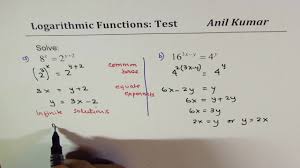 Logarithmic Functions: Test
Anil Kumar
Solve:
a) 8ˣ = 2^(y+2)
(2³)ˣ = 2^(y+2)
common base
3x = y+2
equate exponents
y = 3x - 2
Infinite Solutions
b) 16^(3x-y) = 4^y
4^(2(3x-y)) = 4^y
6x - 2y = y
6x = y + 2y
6x = 3y
2x = y or y = 2x